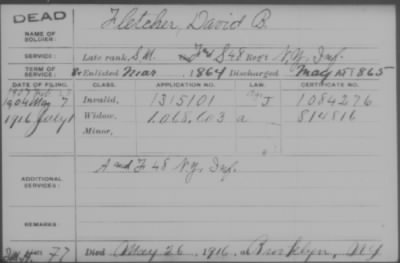 DEAD
NAME OF SOLDIER:
Fletcher, David B.
SERVICE:
Late rank, S.M. F & S 48 Reg't N.Y. Inf.
TERM OF SERVICE:
Enlisted Mar. 1864 Discharged May 1865
DATE OF FILING. CLASS. APPLICATION NO. LAW. CERTIFICATE NO.
1904 May 7 Invalid, 1315101 J 1084276
1916 July 1 Widow, 1.068.603 a 814816
Minor,
ADDITIONAL SERVICES:
A and F 48 N.Y. Inf.
REMARKS:
77 Died May 26, 1916, at Brooklyn, N.Y.